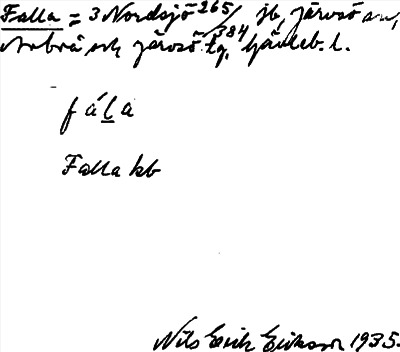 Falla = 3 Nordsjö 265/384 jb, Järvsö sn,
Arbrå och Järvsö tg. Gävleb. l.
fála
Falla kb
Nils Erik Eriksson 1935.